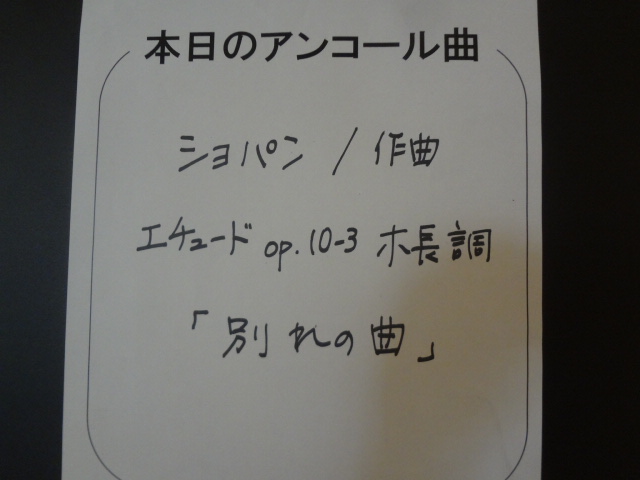 本日のアンコール曲
ショパン / 作曲
エチュード op.10-3 ホ長調
「別れの曲」